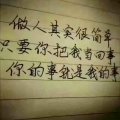 做人其实很简单
只要你把我当回事
你的事就是我的事